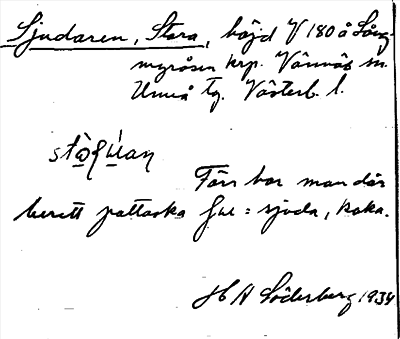 Sjudaren, Stora, höjd V 180 å Lång-
myråsen krp. Vännäs sn.
Umeå tg. Västerb. l.
Förr har man där
berett pottaska ʃu = sjuda, koka.
H A Söderberg 1934